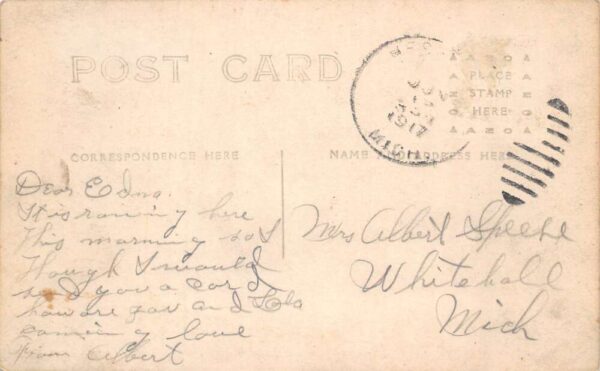 POST CARD
MICH.
1917
AZOA
PLACE
STAMP
HERE
AZOA
CORRESPONDENCE HERE
NAME AND ADDRESS HERE
Dear Edna.
It is raning here
this morning so I
though I would
send you a card
how are you and Lola
coming love
from Albert
Mrs Albert
Whitehall
Mich